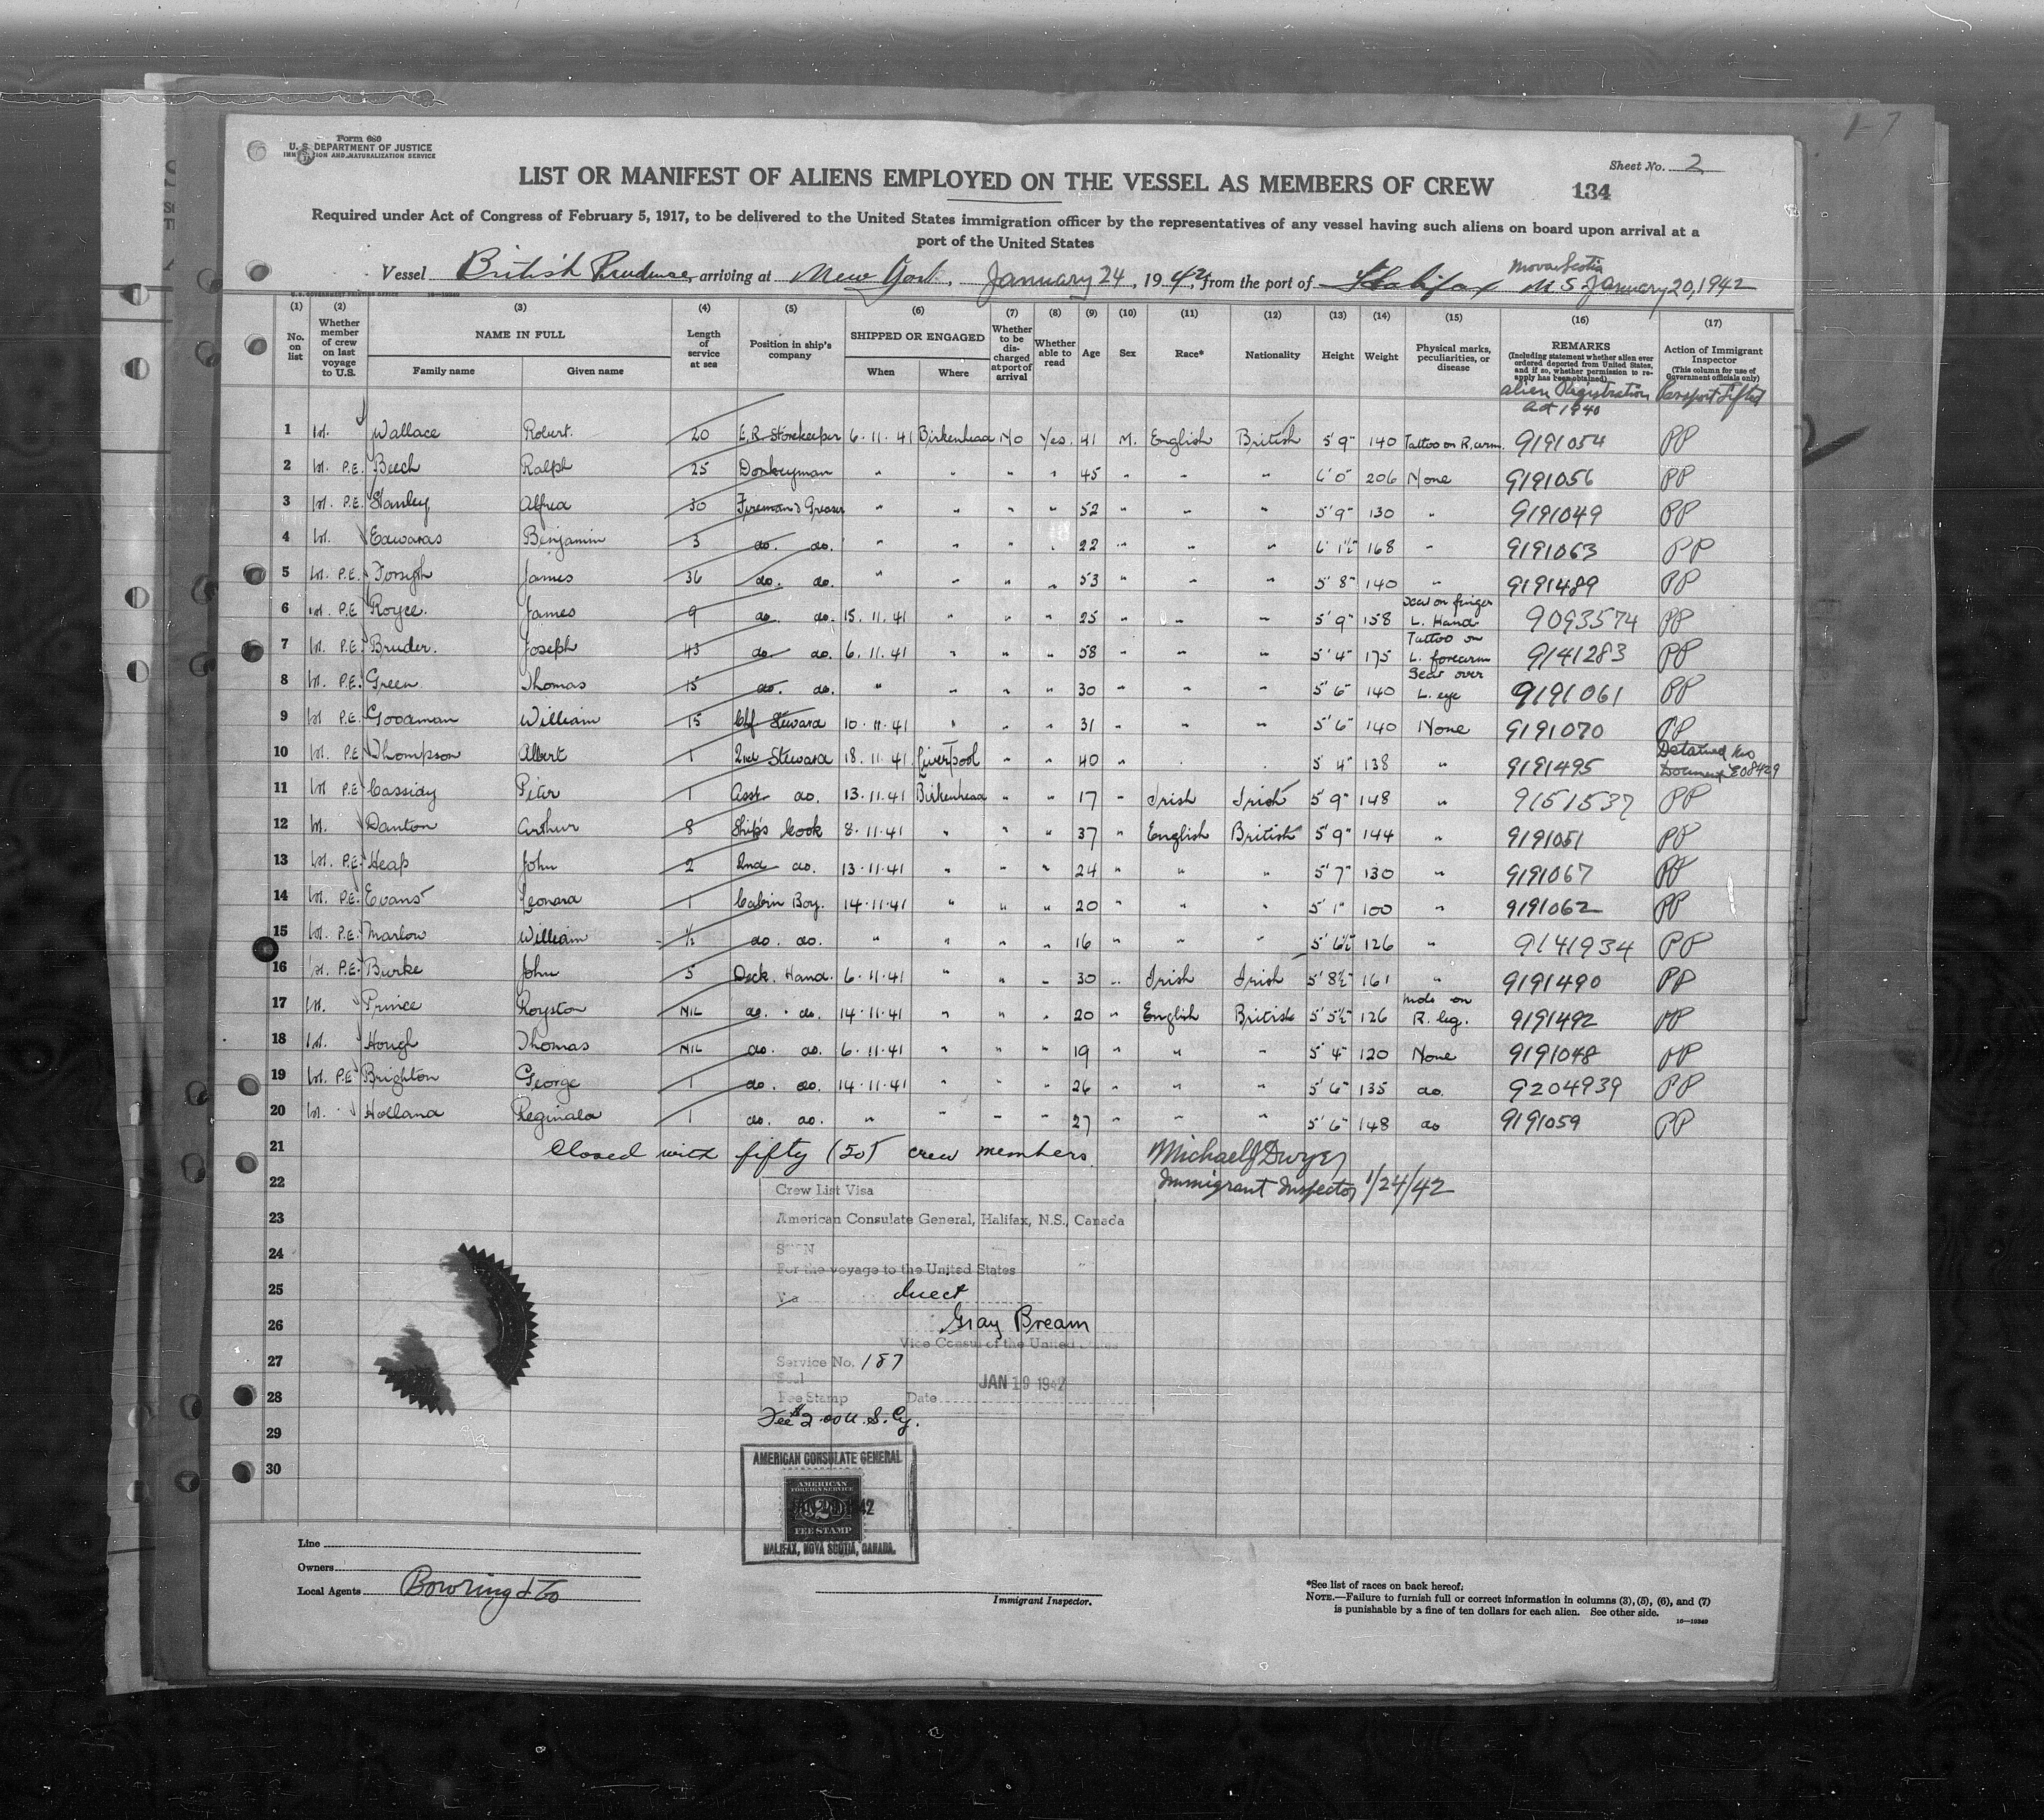 Form 680
U. S. DEPARTMENT OF JUSTICE
IMMIGRATION AND NATURALIZATION SERVICE
Sheet No. 2
LIST OR MANIFEST OF ALIENS EMPLOYED ON THE VESSEL AS MEMBERS OF CREW
134
Required under Act of Congress of February 5, 1917, to be delivered to the United States immigration officer by the representatives of any vessel having such aliens on board upon arrival at a
port of the United States
Vessel British Prudence, arriving at New York, January 24, 1942, from the port of Halifax Nova Scotia N S January 20, 1942
(1) (2) (3) (4) (5) (6) (7) (8) (9) (10) (11) (12) (13) (14) (15) (16) (17)
No. on list
Whether member of crew on last voyage to U.S.
NAME IN FULL
Family name Given name
Length of service at sea
Position in ship's company
SHIPPED OR ENGAGED
When Where
Whether to be discharged at port of arrival
Whether able to read
Age Sex Race* Nationality Height Weight
Physical marks, peculiarities, or disease
REMARKS
(Including statement whether alien ever ordered deported from United States, and if so, whether permission to reapply has been obtained)
Alien Registration Act 1940
Action of Immigrant Inspector
(This column for use of Government officials only)
Passport Lifted
1 Wallace Robert. 20 E.R. Storekeeper 6.11.41 Birkenhead No Yes. 41 M. English British 5'9" 140 Tattoo on R. arm. 9191054 PP
2 P.E. Beech Ralph 25 Donkeyman " " " " 45 " " " 6'0" 206 None 9191056 PP
3 P.E. Stanley Alfred 30 Fireman & Greaser " " " " 52 " " " 5'9" 130 " 9191049 PP
4 Edwards Benjamin 3 do. do. " " " " 22 " " " 6'1½" 168 " 9191063 PP
5 P.E. Forsyth James 36 do. do. " " " " 53 " " " 5'8" 140 " 9191489 PP
6 P.E. Royce. James 9 do. do. 15.11.41 " " " 25 " " " 5'9" 158 Scar on finger L. Hand 9093574 PP
7 P.E. Bruder. Joseph 43 do. do. 6.11.41 " " " 58 " " " 5'4" 175 Tattoo on L. forearm 9141283 PP
8 P.E. Green Thomas 15 do. do. " " " " 30 " " " 5'6" 140 Scar over L. eye 9191061 PP
9 P.E. Goodman William 15 Chf. Steward 10.11.41 " " " 31 " " " 5'6" 140 None 9191070 PP
10 P.E. Thompson Albert 1 2nd Steward 18.11.41 Liverpool " " 40 " " " 5'4" 138 " 9191495 Detained No Document E08429
11 P.E. Cassidy Peter 1 Asst. do. 13.11.41 Birkenhead " " 17 " Irish Irish 5'9" 148 " 9151537 PP
12 Danton Arthur 8 Ship's Cook 8.11.41 " " " 37 " English British 5'9" 144 " 9191051 PP
13 P.E. Heap John 2 2nd do. 13.11.41 " " " 24 " " " 5'7" 130 " 9191067 PP
14 P.E. Evans Leonard 1 Cabin Boy. 14.11.41 " " " 20 " " " 5'1" 100 " 9191062 PP
15 P.E. Marlow William ½ do. do. " " " " 16 " " " 5'6½" 126 " 9141934 PP
16 P.E. Burke John 5 Deck Hand. 6.11.41 " " " 30 " Irish Irish 5'8½" 161 " 9191490 PP
17 Prince Royston NIL do. do. 14.11.41 " " " 20 " English British 5'5½" 126 Mole on R. leg. 9191492 PP
18 Hough Thomas NIL do. do. 6.11.41 " " " 19 " " " 5'4" 120 None 9191048 PP
19 P.E. Brighton George 1 do. do. 14.11.41 " " " 26 " " " 5'6" 135 do. 9204939 PP
20 Holland Reginald 1 do. do. " " " " 27 " " " 5'6" 148 do 9191059 PP
21 Closed with fifty (50) crew members. Michael J Dwyer
22 Immigrant Inspector 1/24/42
Crew List Visa
23 American Consulate General, Halifax, N.S., Canada
24 SEEN
For the voyage to the United States
25 Via direct
26 Gray Bream
Vice Consul of the United States
27 Service No. 187
Seal
28 Fee Stamp Date JAN 19 1942
Fee $2.00 U.S. Cy.
29
30
AMERICAN CONSULATE GENERAL
AMERICAN
FOREIGN SERVICE
2
FEE STAMP
HALIFAX, NOVA SCOTIA, CANADA.
Line
Owners
Local Agents Bowring & Co
Immigrant Inspector.
*See list of races on back hereof.
NOTE.—Failure to furnish full or correct information in columns (3), (5), (6), and (7)
is punishable by a fine of ten dollars for each alien. See other side.
16—10349